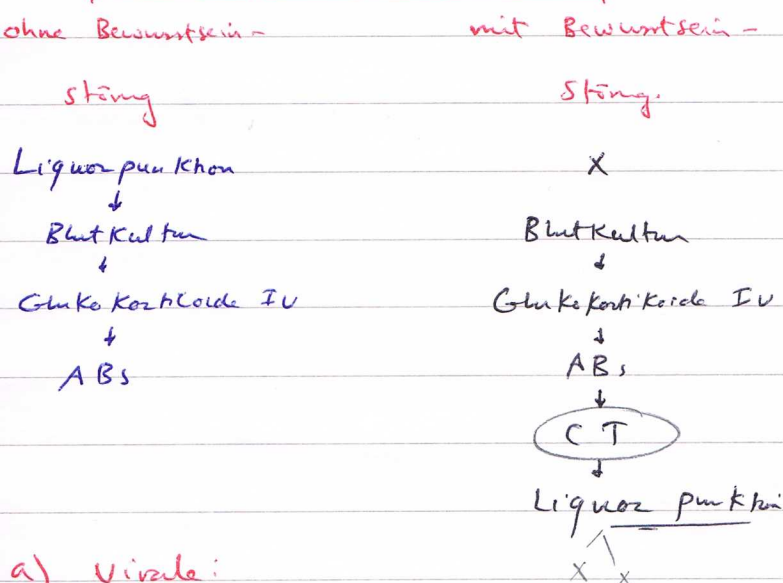 ohne Bewusstsein-
störung
Liquorpunktion
↓
Blutkultur
↓
Glukokortikoide IV
↓
ABs
mit Bewusstsein-
Störung.
X
Blutkultur
↓
Glukokortikoide IV
↓
ABs
↓
CT
↓
Liquor punktion
X X
a) Virale: